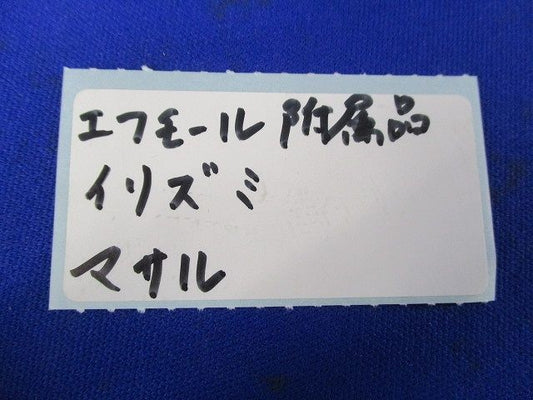 エフモール 附属品
イリズミ
マサル